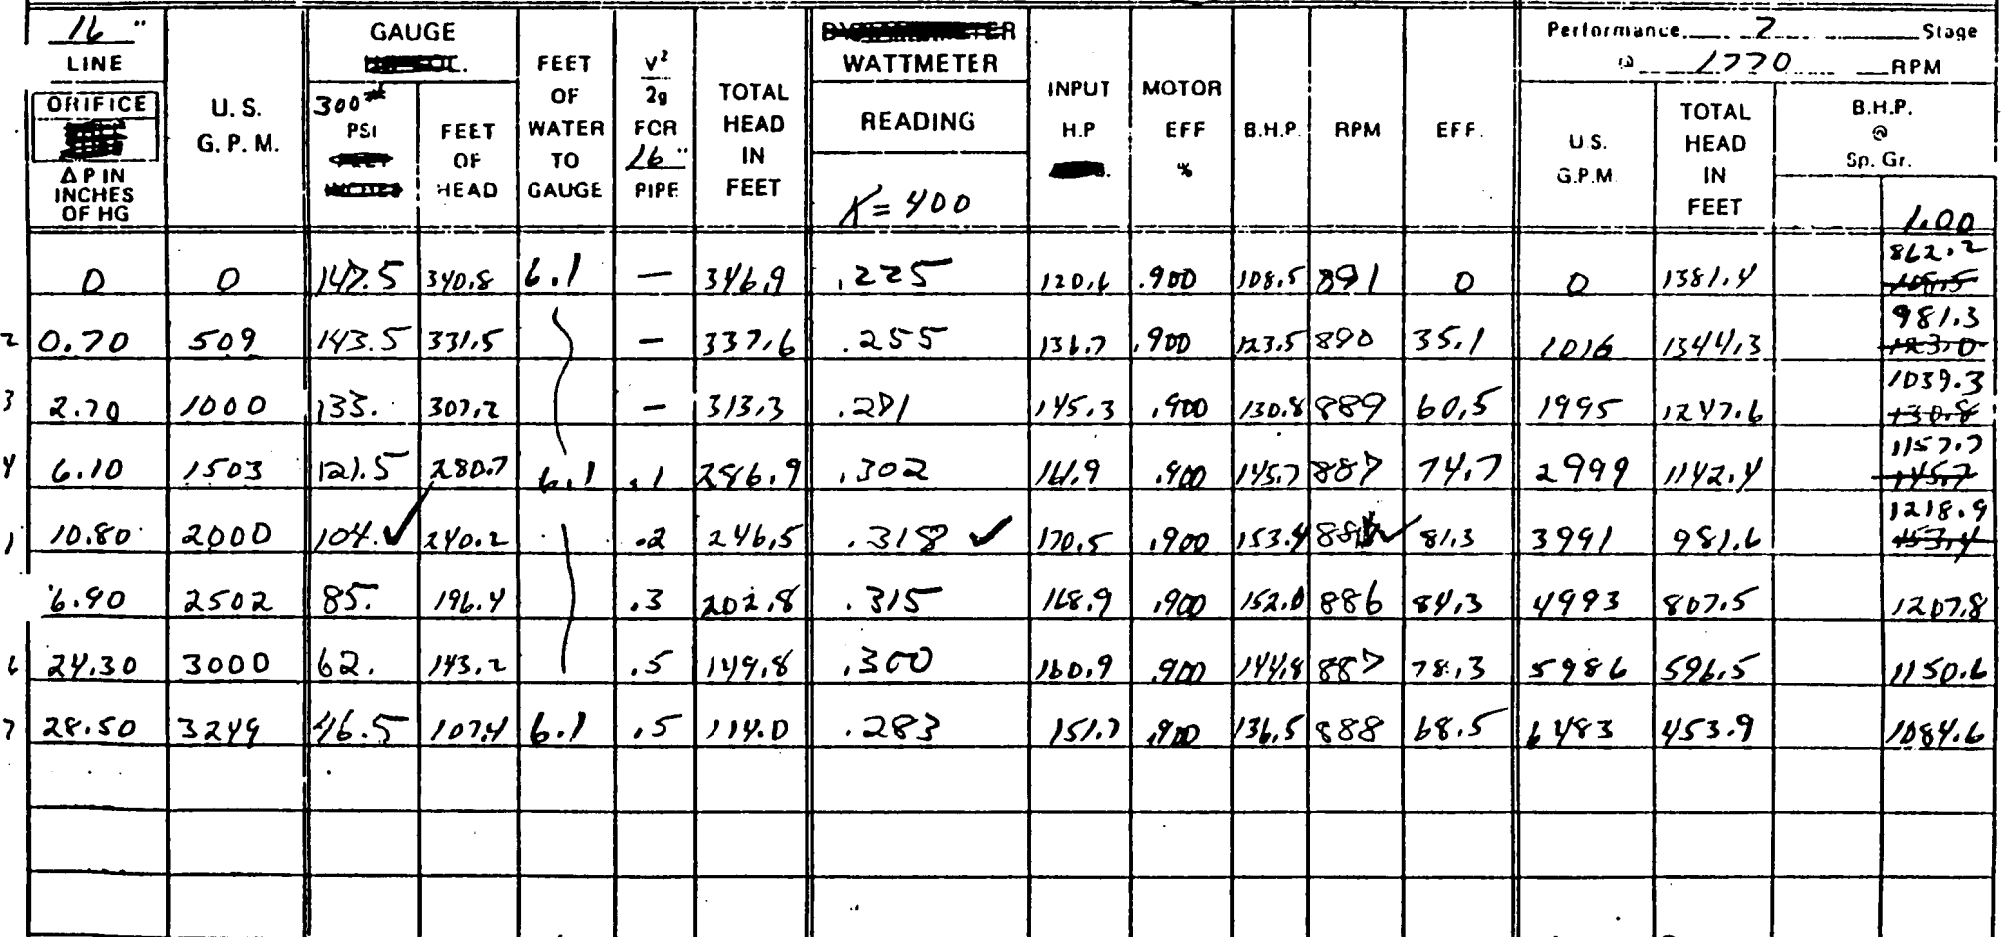 16 "
LINE
ORIFICE
Δ P IN
INCHES
OF HG
U. S.
G. P. M.
GAUGE
300#
PSI
FEET
OF
HEAD
FEET
OF
WATER
TO
GAUGE
V²
2g
FOR
16"
PIPE
TOTAL
HEAD
IN
FEET
WATTMETER
READING
K = 400
INPUT
H.P
MOTOR
EFF
%
B.H.P.
RPM
EFF.
Performance 2 Stage
@ 1770 RPM
U.S.
G.P.M.
TOTAL
HEAD
IN
FEET
B.H.P.
@
Sp. Gr.
1.00
0 0 147.5 340.8 6.1 — 346.9 .225 120.6 .900 108.5 891 0 0 1381.4 862.2 108.5
2 0.70 509 143.5 331.5 — 337.6 .255 136.7 .900 123.5 890 35.1 1016 1344.3 981.3 123.0
3 2.70 1000 133. 307.2 — 313.3 .271 145.3 .900 130.8 889 60.5 1995 1247.6 1039.3 130.8
4 6.10 1503 121.5 280.7 6.1 .1 286.9 .302 161.9 .900 145.7 887 74.7 2999 1142.4 1157.7 145.7
1 10.80 2000 104. ✓ 240.2 .2 246.5 .318 ✓ 170.5 .900 153.4 ✓ 81.3 3991 981.6 1218.9 153.4
6.90 2502 85. 196.4 .3 202.8 .315 168.9 .900 152.0 886 84.3 4993 807.5 1207.8
6 24.30 3000 62. 143.2 .5 149.8 .300 160.9 .900 144.8 887 78.3 5986 596.5 1150.6
7 28.50 3249 46.5 107.4 6.1 .5 114.0 .283 151.7 .900 136.5 888 68.5 6483 453.9 1084.6